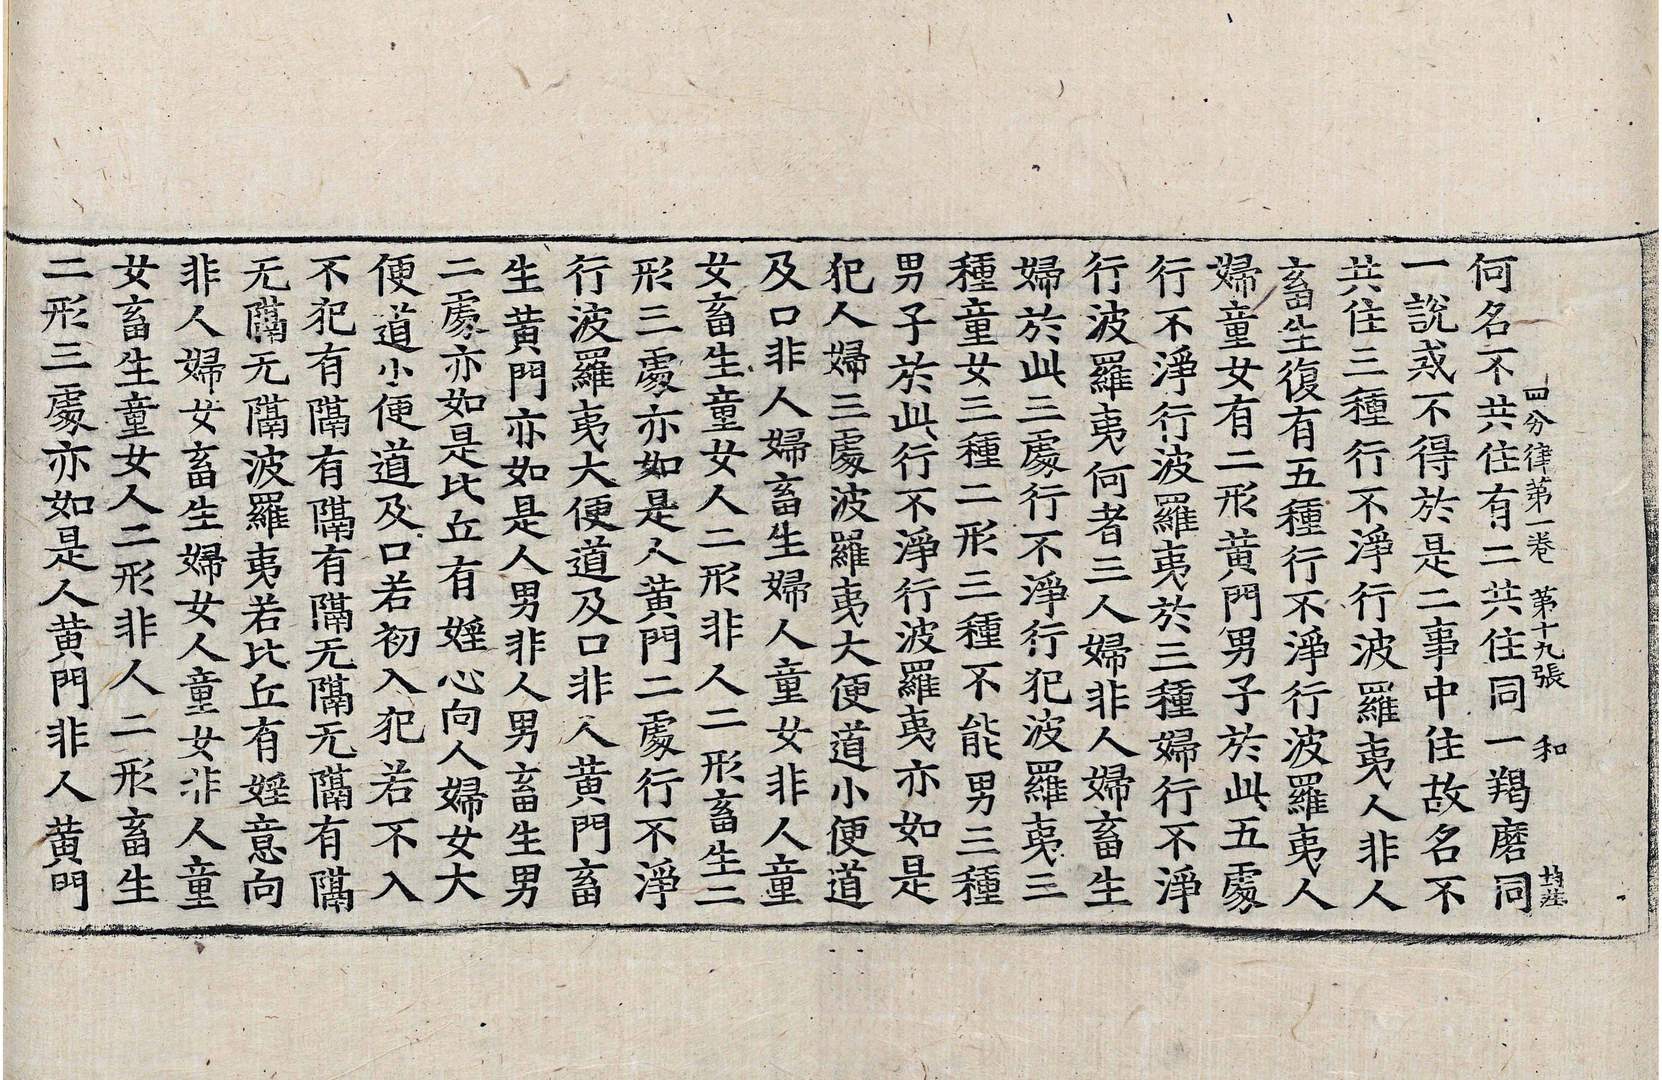 四分律第一卷 第十九張 和
何名不共住有二共住同一羯磨同
一說戒不得於是二事中住故名不
共住三種行不淨行波羅夷人非人
畜生復有五種行不淨行波羅夷人
婦童女有二形黃門男子於此五處
行不淨行波羅夷於三種婦行不淨
行波羅夷何者三人婦非人婦畜生
婦於此三處行不淨行犯波羅夷三
種童女三種二形三種不能男三種
男子於此行不淨行波羅夷亦如是
犯人婦三處波羅夷大便道小便道
及口非人婦畜生婦人童女非人童
女畜生童女人二形非人二形畜生二
形三處亦如是人黃門二處行不淨
行波羅夷大便道及口非人黃門畜
生黃門亦如是人男非人男畜生男
二處亦如是比丘有婬心向人婦女大
便道小便道及口若初入犯若不入
不犯有隔有隔有隔无隔无隔有隔
无隔无隔波羅夷若比丘有婬意向
非人婦女畜生婦女人童女非人童
女畜生童女人二形非人二形畜生
二形三處亦如是人黃門非人黃門